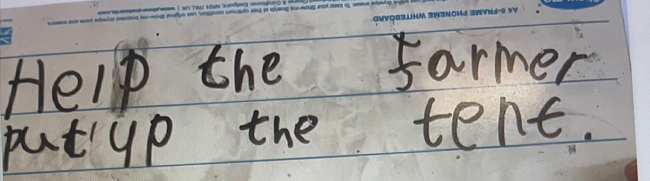 A6-FRAME PHONEME WHITEBOARD
Help the farmer
put up the tent.